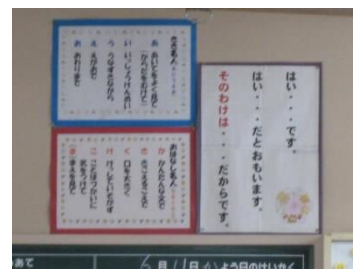 きき名人
あ あいてをよく見て
（からだをむけて）
い いっしょうけんめい
う うなずきながら
え えがおで
お おわりまで
おはなし名人
か かんたんな文で
き きこえるこえで
く 口を大きく
け けっしていそがず
こ ことばづかいに
気をつけて
まえを見て
はい・・・です。
はい・・・だとおもいます。
そのわけは・・・だからです。
めあて
6月11日かよう日のけいかく